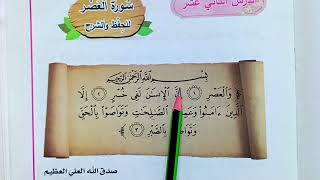 الدرس الثاني عشر
سُورَةُ العَصْرِ
للحِفْظِ والشرح
بِسْمِ اللَّهِ الرَّحْمَٰنِ الرَّحِيمِ
﴿ وَالْعَصْرِ ١ إِنَّ الْإِنسَانَ لَفِي خُسْرٍ ٢ إِلَّا
الَّذِينَ ءَامَنُوا وَعَمِلُوا الصَّالِحَاتِ وَتَوَاصَوْا بِالْحَقِّ
وَتَوَاصَوْا بِالصَّبْرِ ٣ ﴾
صدق الله العلي العظيم